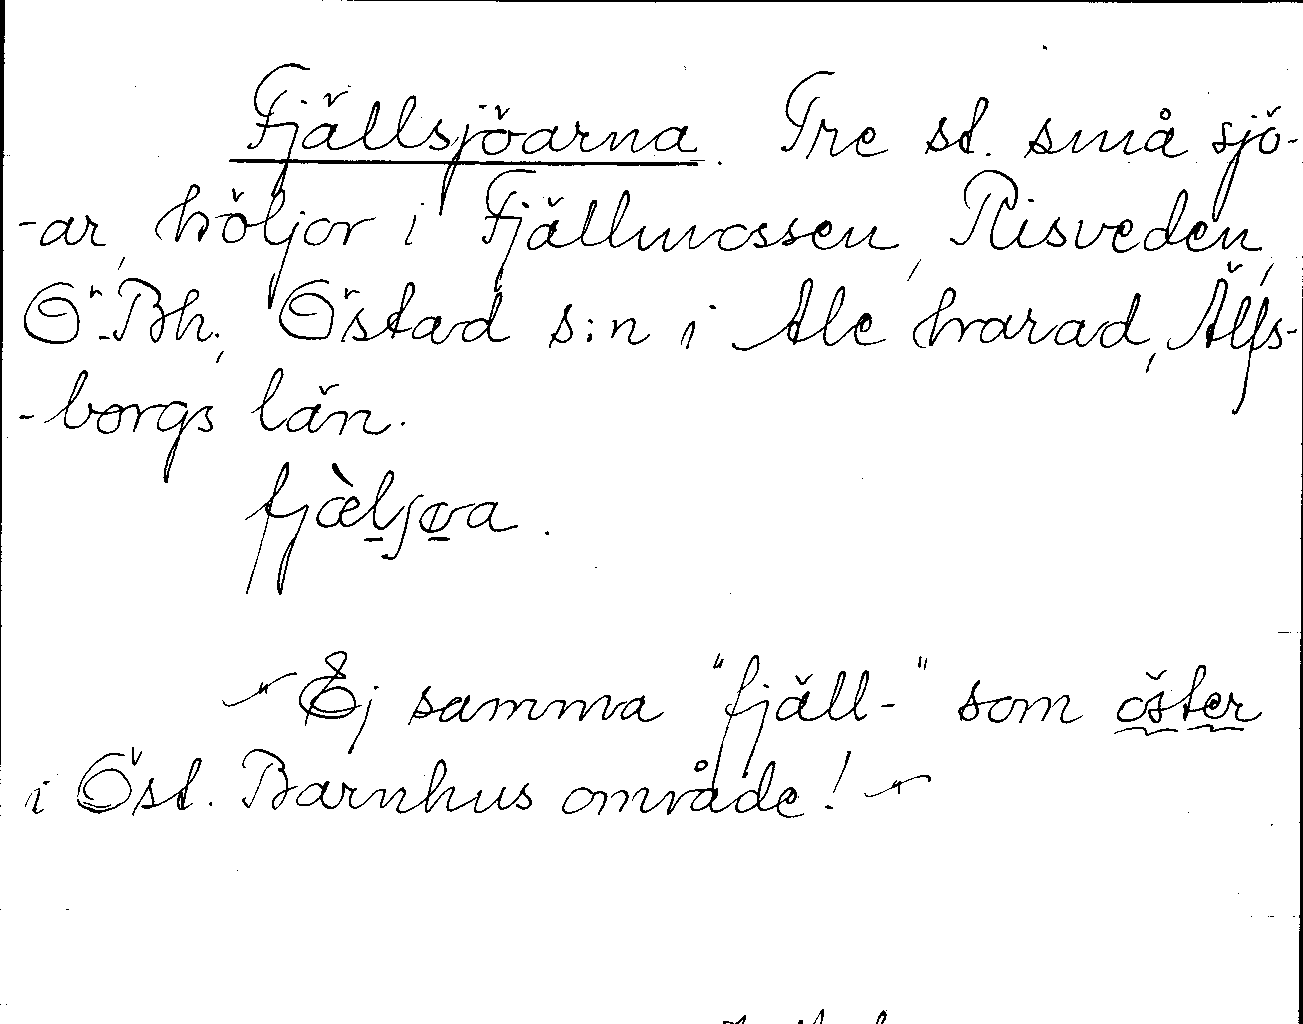 Fjällsjöarna. Tre st. små sjö-
-ar, höljor i Fjällmossen, Risveden,
Ö.Bh., Östad s:n i Ale härad, Älfs-
-borgs län.
fjæ̀l̠ʃɵ̠a.
Ej samma "fjäll-" som öster
i Öst. Barnhus område!